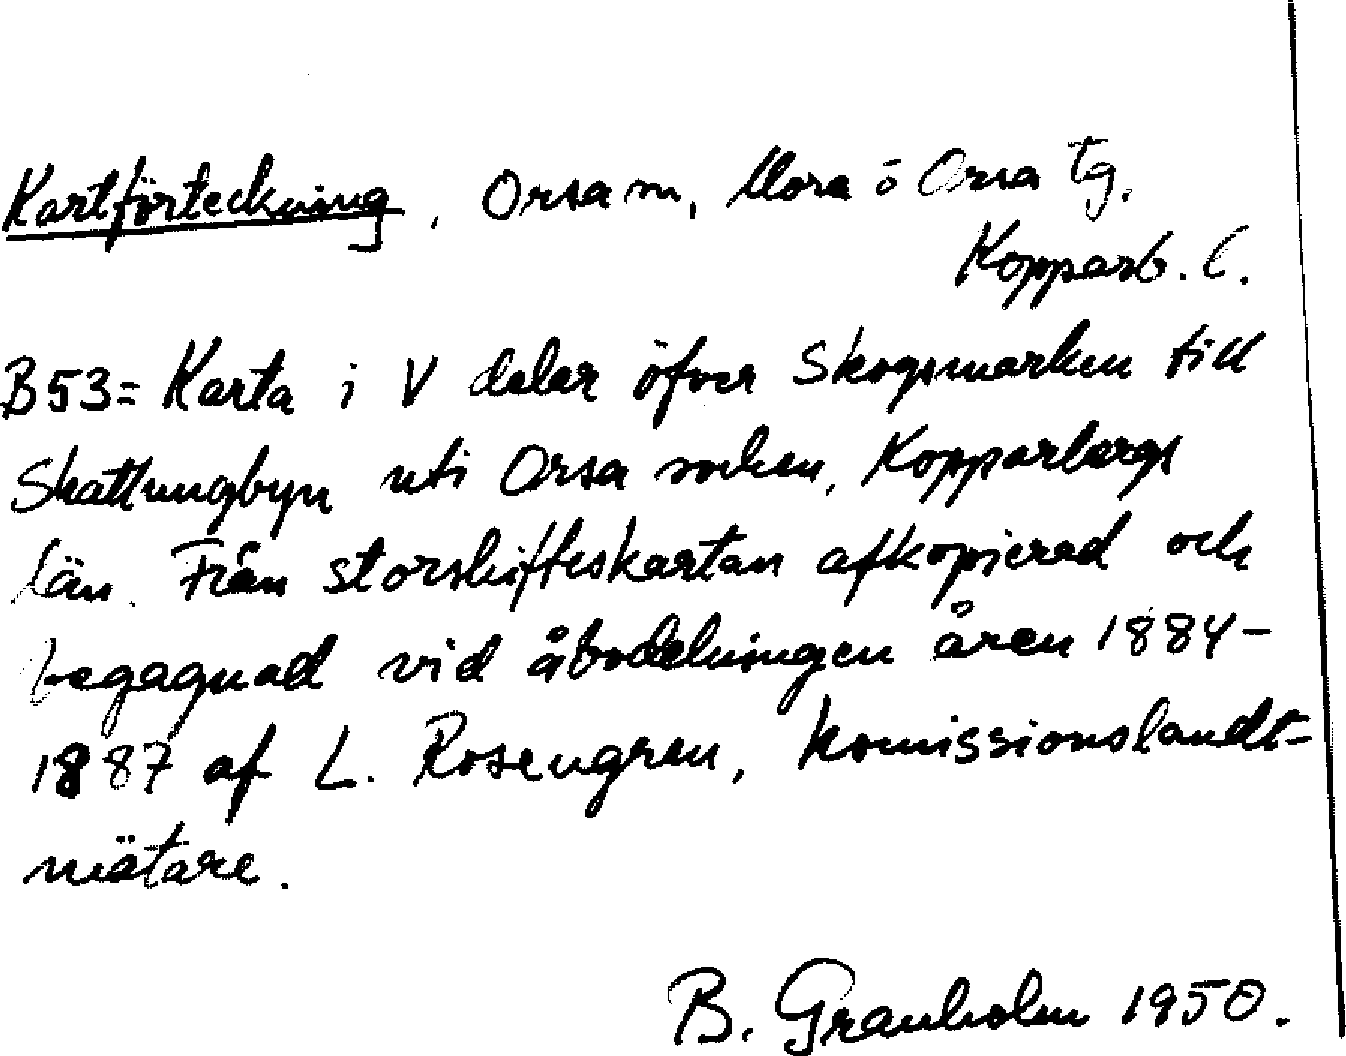 Kartförteckning, Orsa sn, Mora o Orsa tg.
Kopparb. l.
B53= Karta i V delar öfver Skogsmarken till
Skattungbyn uti Orsa socken, Kopparbergs
län. Från storskifteskartan afkopierad och
begagnad vid åbodelningen åren 1884-
1887 af L. Rosengren, komissionslandt-
mätare.
B. Granholm 1950.